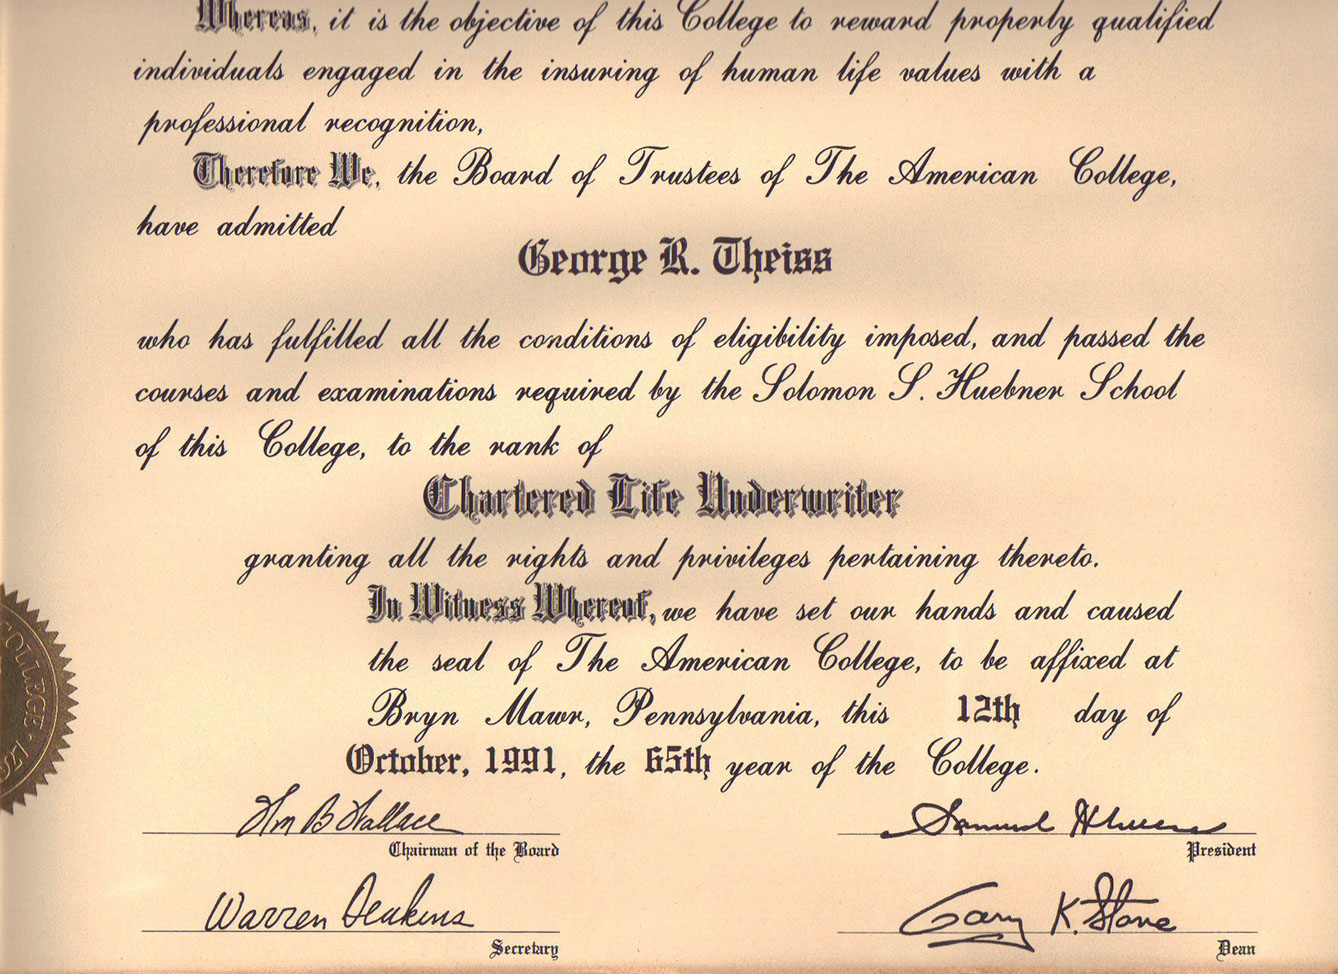 Whereas, it is the objective of this College to reward properly qualified
individuals engaged in the insuring of human life values with a
professional recognition,
Therefore We, the Board of Trustees of The American College,
have admitted
George R. Theiss
who has fulfilled all the conditions of eligibility imposed, and passed the
courses and examinations required by the Solomon S. Huebner School
of this College, to the rank of
Chartered Life Underwriter
granting all the rights and privileges pertaining thereto.
In Witness Whereof, we have set our hands and caused
the seal of The American College, to be affixed at
Bryn Mawr, Pennsylvania, this 12th day of
October, 1991, the 65th year of the College.
COLLEGE
Wm B Wallace
Chairman of the Board
Samuel
President
Warren Deakins
Secretary
Gary K. Stone
Dean